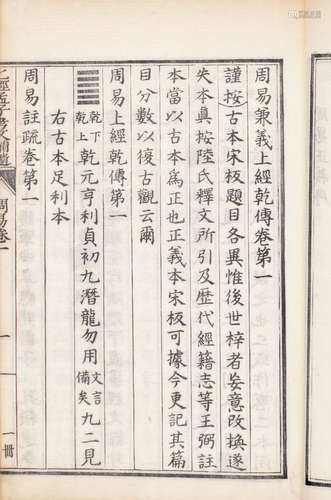 周易兼義上經乾傳卷第一
謹按古本宋板題目各異惟後世梓者妄意改換遂
失本真按陸氏釋文所引及歷代經籍志等王弼註
本當以古本為正也正義本宋板可據今更記其篇
目分數以復古觀云爾
周易上經乾傳第一
乾下乾上乾元亨利貞初九潛龍勿用文言備矣九二見
右古本足利本
周易註疏卷第一
七經孟子考文補遺
周易卷一
一
一冊